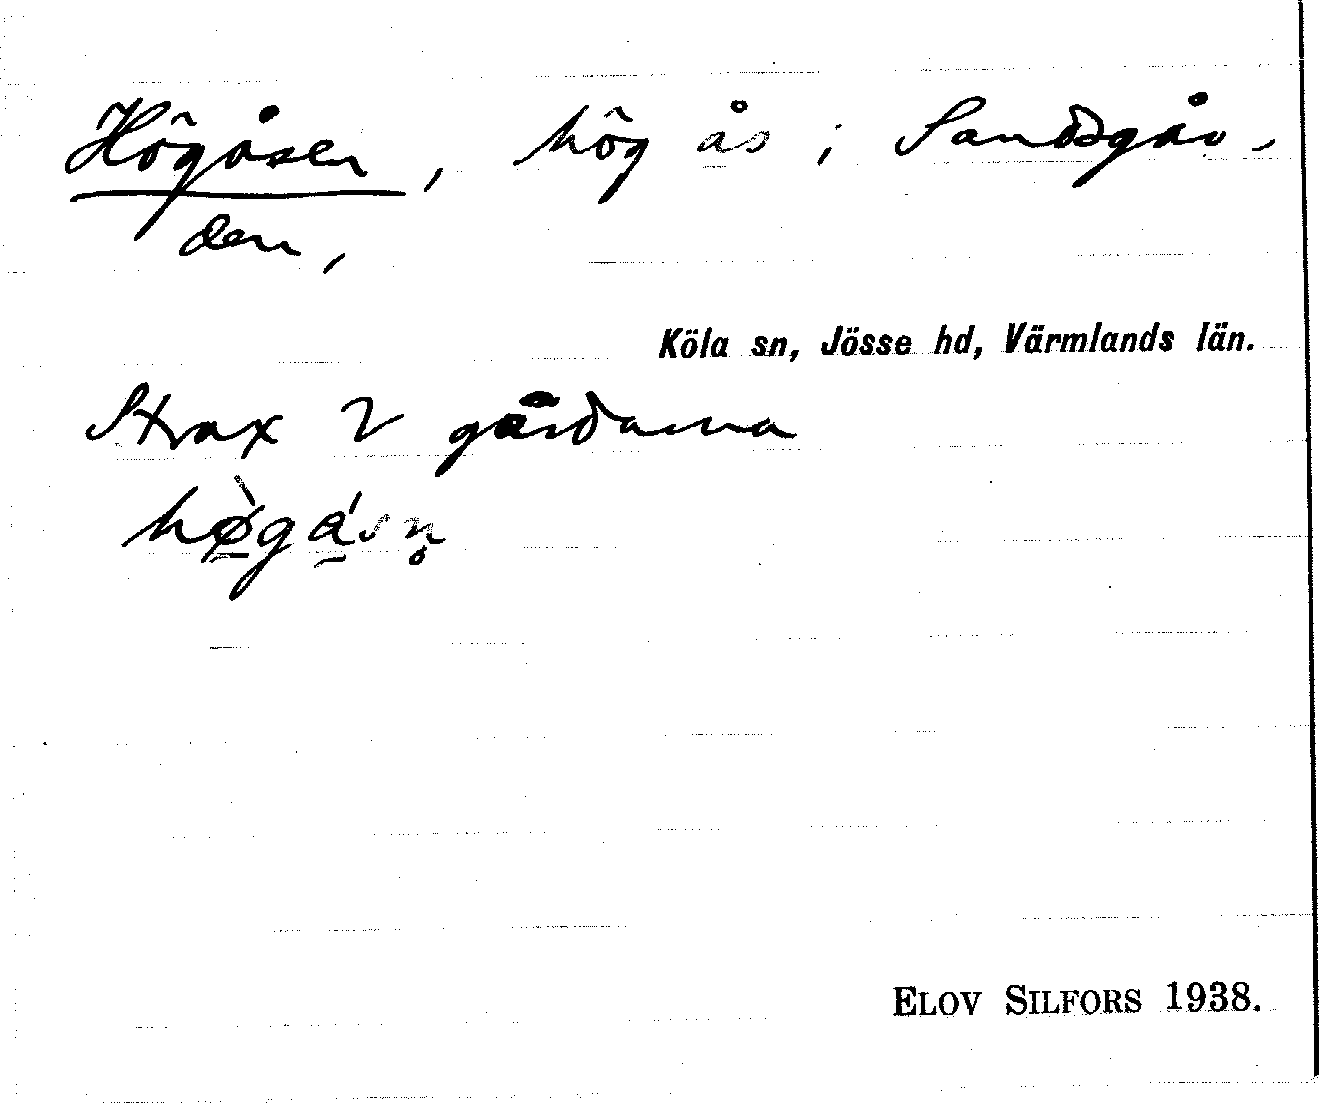 Högåsen, hög ås i Sandsgår-
den,
Köla sn, Jösse hd, Värmlands län.
Strax V gårdarna
hø̀gåsn̥
ELOV SILFORS 1938.